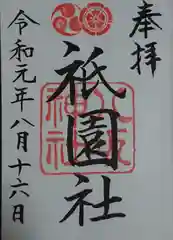 奉拝
祇園社
八坂神社
令和元年八月十六日